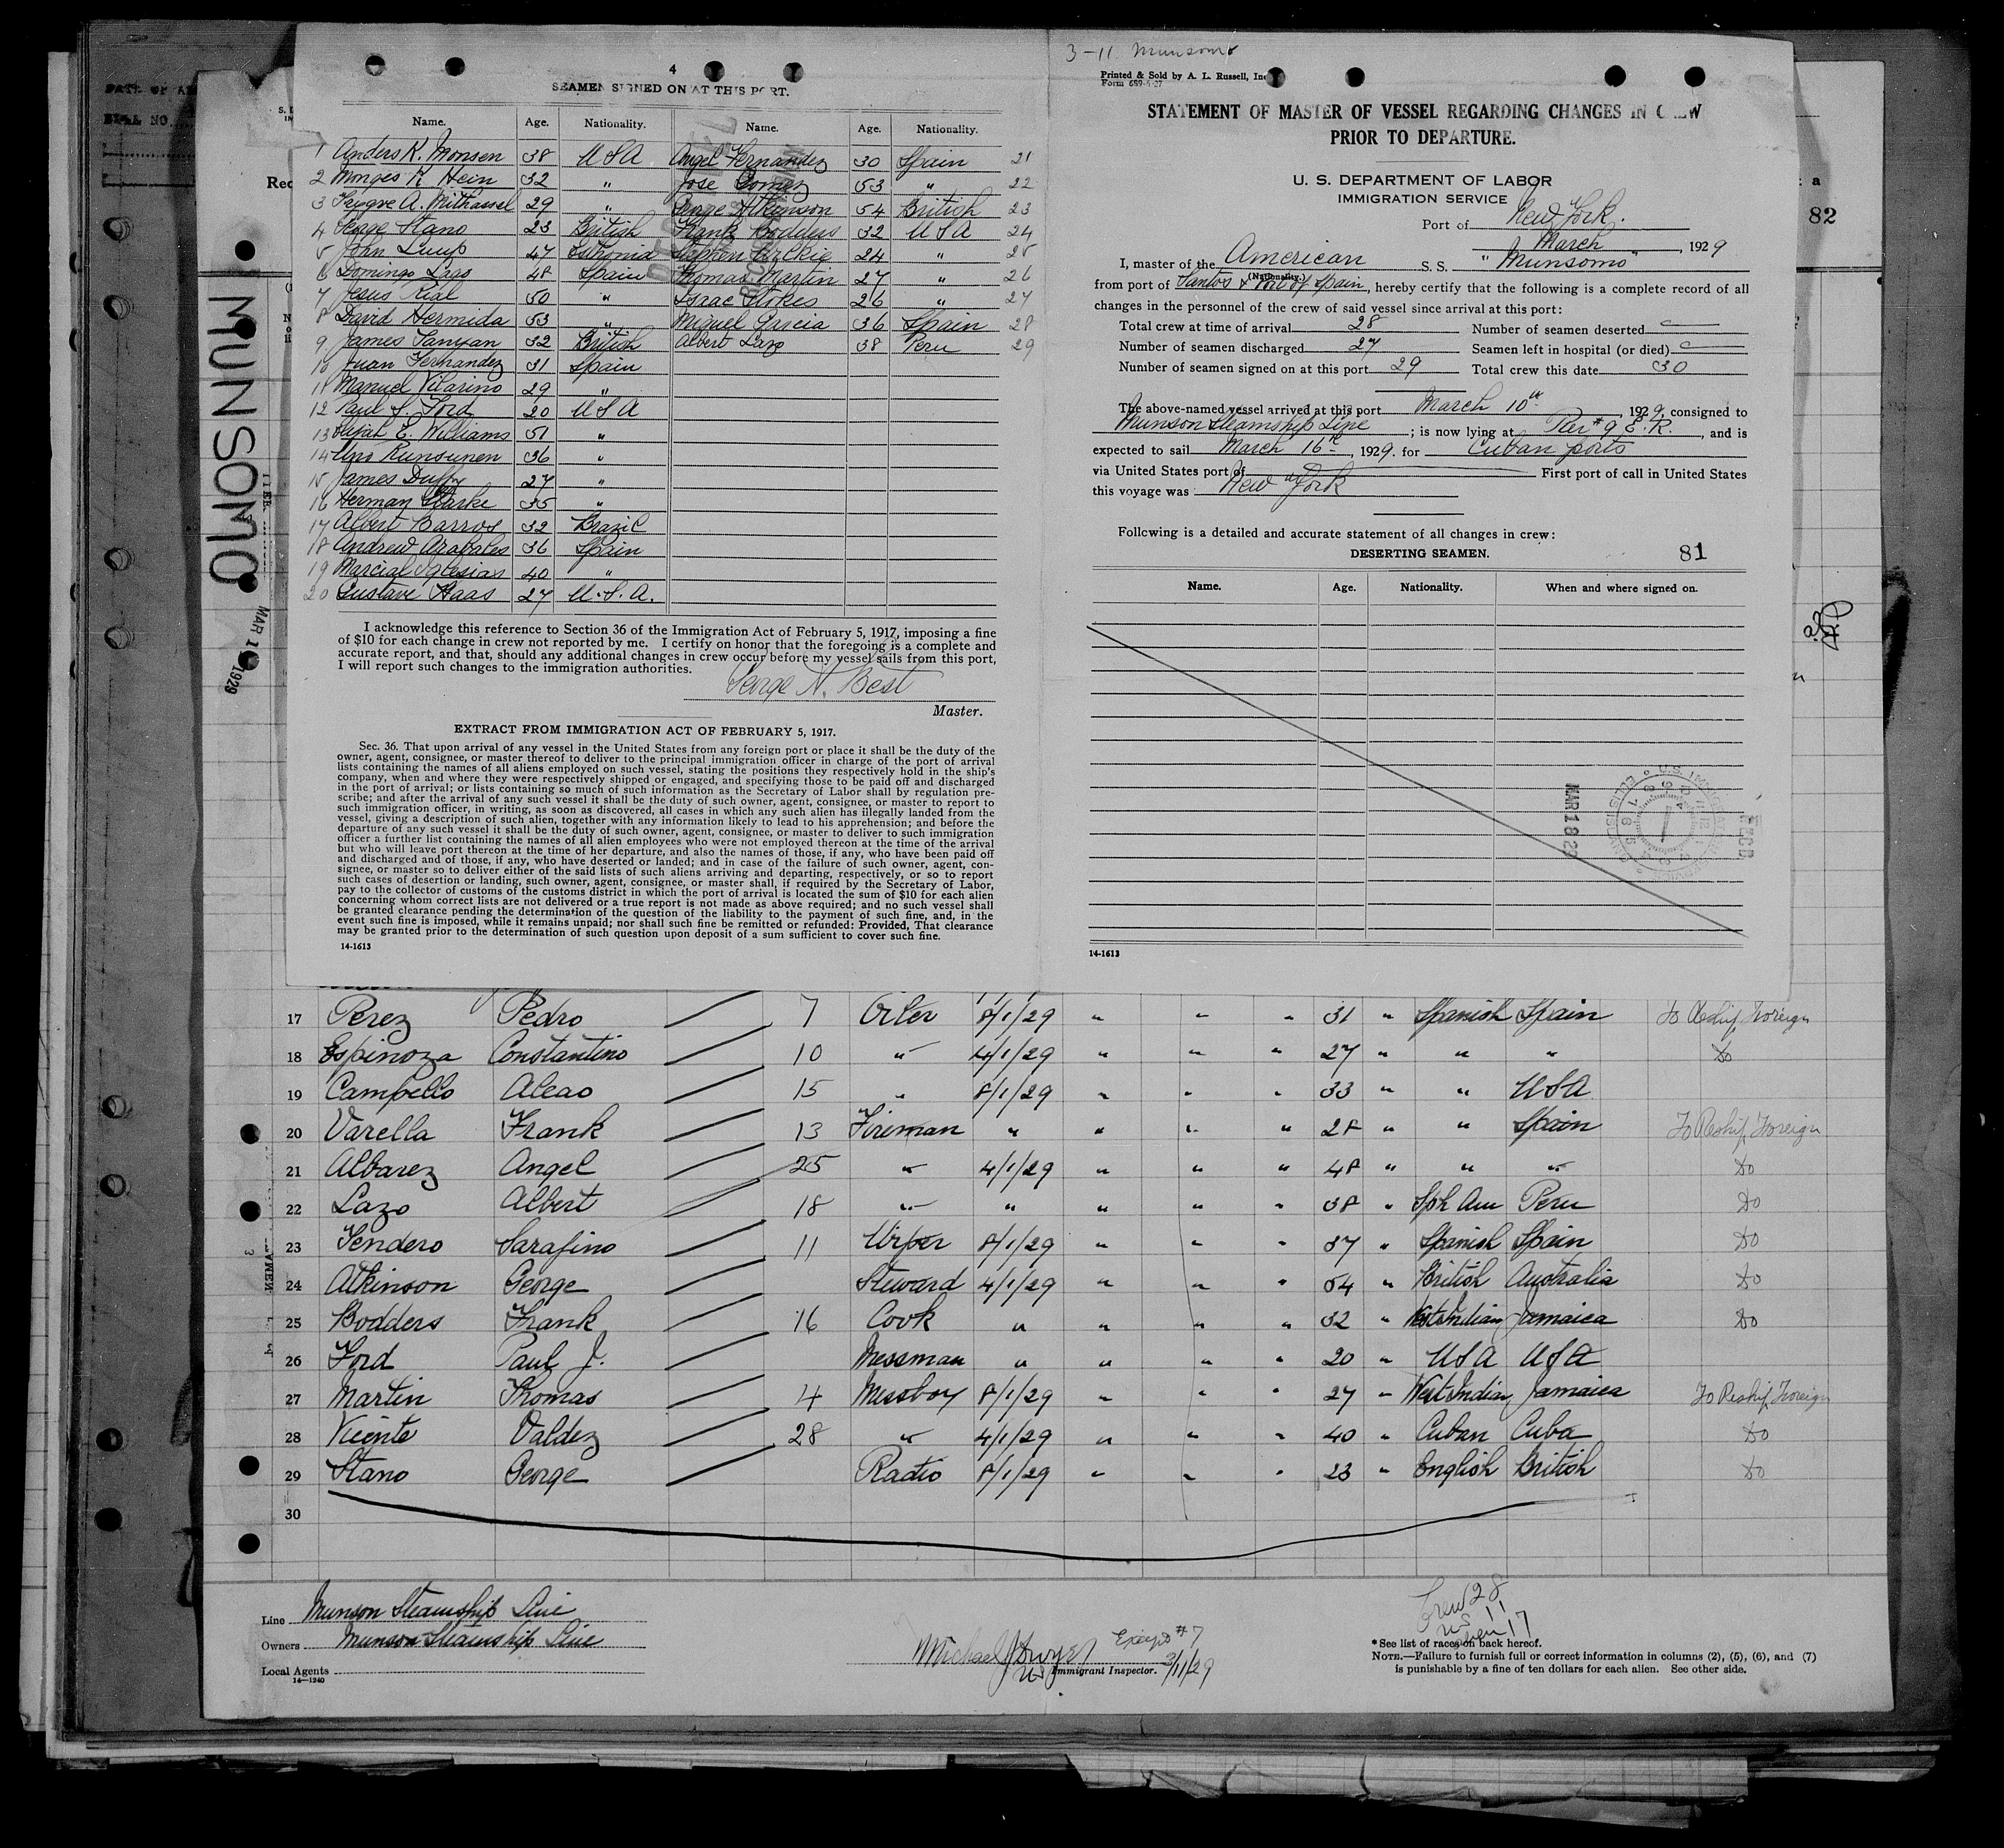 4
SEAMEN SIGNED ON AT THIS PORT.
Name. Age. Nationality. Name. Age. Nationality.
1 Anders K. Monsen 38 USA Angel Fernandez 30 Spain 21
2 Monges K Hein 32 " Jose Gomez 53 " 22
3 Trygve A. Mithassel 29 " George Atkinson 54 British 23
4 George Stano 23 British Frank Bodders 32 USA 24
5 John Luup 47 Esthonia Stephen 24 " 25
6 Domingo Lago 48 Spain Thomas Martin 27 " 26
7 Jesus Rial 50 " Isaac Stokes 26 " 27
8 David Hermida 53 " Miguel Garcia 36 Spain 28
9 James Tanyan 32 British Albert Lazo 38 Peru 29
10 Juan Fernandez 31 Spain
11 Manuel Vilarino 29 "
12 Paul J. Ford 20 USA
13 Elijah E. Williams 51 "
14 36 "
15 James Duffy 27 "
16 Herman Clarke 35 "
17 Albert Barros 32 Brazil
18 Andrew 36 Spain
19 Marcial Iglesias 40 "
20 Gustave Haas 27 U.S.A.
I acknowledge this reference to Section 36 of the Immigration Act of February 5, 1917, imposing a fine
of $10 for each change in crew not reported by me. I certify on honor that the foregoing is a complete and
accurate report, and that, should any additional changes in crew occur before my vessel sails from this port,
I will report such changes to the immigration authorities.
George N. Best
Master.
EXTRACT FROM IMMIGRATION ACT OF FEBRUARY 5, 1917.
Sec. 36. That upon arrival of any vessel in the United States from any foreign port or place it shall be the duty of the
owner, agent, consignee, or master thereof to deliver to the principal immigration officer in charge of the port of arrival
lists containing the names of all aliens employed on such vessel, stating the positions they respectively hold in the ship's
company, when and where they were respectively shipped or engaged, and specifying those to be paid off and discharged
in the port of arrival; or lists containing so much of such information as the Secretary of Labor shall by regulation pre-
scribe; and after the arrival of any such vessel it shall be the duty of such owner, agent, consignee, or master to report to
such immigration officer, in writing, as soon as discovered, all cases in which any such alien has illegally landed from the
vessel, giving a description of such alien, together with any information likely to lead to his apprehension; and before the
departure of any such vessel it shall be the duty of such owner, agent, consignee, or master to deliver to such immigration
officer a further list containing the names of all alien employees who were not employed thereon at the time of the arrival
but who will leave port thereon at the time of her departure, and also the names of those, if any, who have been paid off
and discharged and of those, if any, who have deserted or landed; and in case of the failure of such owner, agent, con-
signee, or master so to deliver either of the said lists of such aliens arriving and departing, respectively, or so to report
such cases of desertion or landing, such owner, agent, consignee, or master shall, if required by the Secretary of Labor,
pay to the collector of customs of the customs district in which the port of arrival is located the sum of $10 for each alien
concerning whom correct lists are not delivered or a true report is not made as above required; and no such vessel shall
be granted clearance pending the determination of the question of the liability to the payment of such fine, and, in the
event such fine is imposed, while it remains unpaid; nor shall such fine be remitted or refunded: Provided, That clearance
may be granted prior to the determination of such question upon deposit of a sum sufficient to cover such fine.
14-1613
3-11 Munsomo
Printed & Sold by A. L. Russell, Inc
Form 689-
STATEMENT OF MASTER OF VESSEL REGARDING CHANGES IN CREW
PRIOR TO DEPARTURE.
U. S. DEPARTMENT OF LABOR
IMMIGRATION SERVICE
Port of New York.
March, 1929
I, master of the American S. S. "Munsomo"
(Nationality.)
from port of Santos & Port of Spain, hereby certify that the following is a complete record of all
changes in the personnel of the crew of said vessel since arrival at this port:
Total crew at time of arrival 28 Number of seamen deserted —
Number of seamen discharged 27 Seamen left in hospital (or died) —
Number of seamen signed on at this port 29 Total crew this date 30
The above-named vessel arrived at this port March 10th, 1929, consigned to
Munson Steamship Line; is now lying at Pier #9 E.R., and is
expected to sail March 16th, 1929. for Cuban ports
via United States port of — First port of call in United States
this voyage was New York
Following is a detailed and accurate statement of all changes in crew:
DESERTING SEAMEN.
81
Name. Age. Nationality. When and where signed on.
MAR 18 29
REC'D
14-1613
82
MUNSOMO
MAR 1 1929
17 Perez Pedro 7 Oiler 8/1/29 " " " 31 " Spanish Spain To Reship Foreign
18 Espinoza Constantino 10 " 4/1/29 " " " 27 " " " Do
19 Campello Aleao 15 " 8/1/29 " " " 33 " " USA
20 Varella Frank 13 Fireman " " " " 28 " " Spain To Reship Foreign
21 Albarez Angel 25 " 4/1/29 " " " 48 " " " Do
22 Lazo Albert 18 " " " " " 38 " Sph Am Peru Do
23 Tendero Sarafino 11 Wiper 8/1/29 " " " 37 " Spanish Spain Do
24 Atkinson George Steward 4/1/29 " " " 54 " British Australia Do
25 Bodders Frank 16 Cook " " " " 32 " West Indian Jamaica Do
26 Ford Paul J. Messman " " " " 20 " USA USA
27 Martin Thomas 4 Messboy 8/1/29 " " " 27 " West Indian Jamaica To Reship Foreign
28 Vicente Valdez 28 " 4/1/29 " " " 40 " Cuban Cuba Do
29 Stano George Radio 8/1/29 " " " 23 " English British Do
30
Line Munson Steamship Line
Owners Munson Steamship Line
Local Agents
14—1240
Michael J Dwyer Except #7
Immigrant Inspector. 3/11/29
Crew 28
US 11
alien 17
*See list of races on back hereof.
NOTE.—Failure to furnish full or correct information in columns (2), (5), (6), and (7)
is punishable by a fine of ten dollars for each alien. See other side.